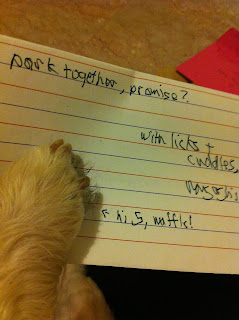 park together, promise?
with licks +
cuddles,
← hi, 5, waffle!